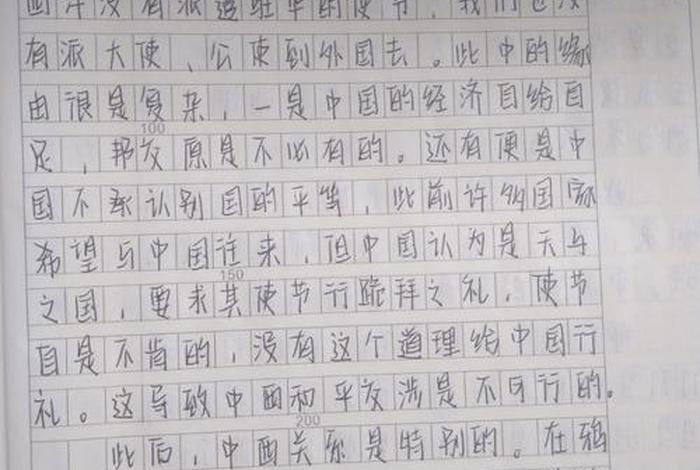 西洋没有派遣驻华的使节，我们也没
有派大使、公使到外国去。此中的缘
由很是复杂，一是中国的经济自给自
100
足，邦交原是不必有的。还有便是中
国不承认别国的平等，此前许多国家
希望与中国往来，但中国认为是天与
150
之国，要求其使节行跪拜之礼，使节
自是不肯的，没有这个道理给中国行
礼。这导致中西和平交涉是不可行的。
200
此后，中西关系是特别的。在鸦